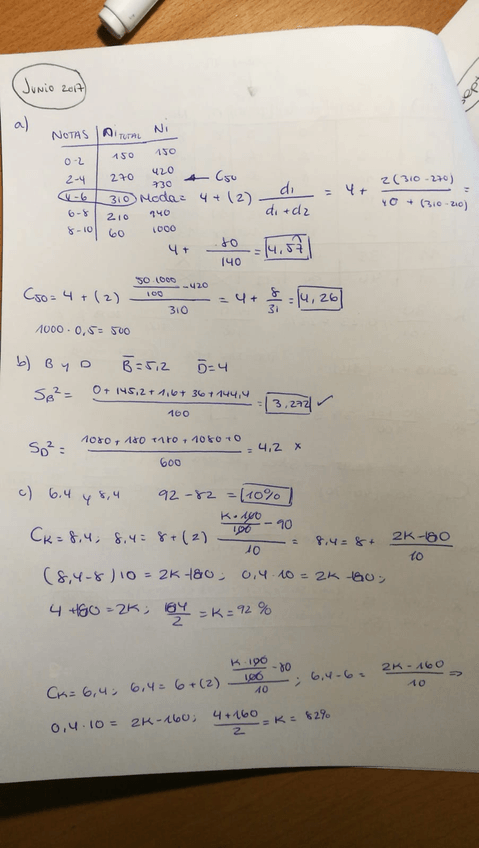 JUNIO 2017
a)
NOTAS | ni TOTAL | Ni
0-2 150 150
2-4 270 420 ← C50
4-6 310 730 Moda = 4 + (2) d1 / d1 + d2 = 4 + 2(310-270) / 40 + (310-210) =
6-8 210 940
8-10 60 1000
4 + 80 / 140 = 4,57
C50 = 4 + (2) 50·1000 / 100 - 420 / 310 = 4 + 8 / 31 = 4,26
1000 · 0,5 = 500
b) B y D B̄ = 5,2 D̄ = 4
SB² = 0 + 145,2 + 1,6 + 36 + 144,4 / 100 = 3,272 ✓
SD² = 1080 + 180 + 180 + 1080 + 0 / 600 = 4,2 x
c) 6,4 y 8,4 92 - 82 = 10%
CK = 8,4; 8,4 = 8 + (2) K·100 / 100 - 90 / 10 = 8,4 = 8 + 2K - 180 / 10
(8,4 - 8) 10 = 2K - 180; 0,4 · 10 = 2K - 180;
4 + 180 = 2K; 184 / 2 = K = 92%
CK = 6,4; 6,4 = 6 + (2) K·100 / 100 - 80 / 10; 6,4 - 6 = 2K - 160 / 10 ⇒
0,4 · 10 = 2K - 160; 4 + 160 / 2 = K = 82%